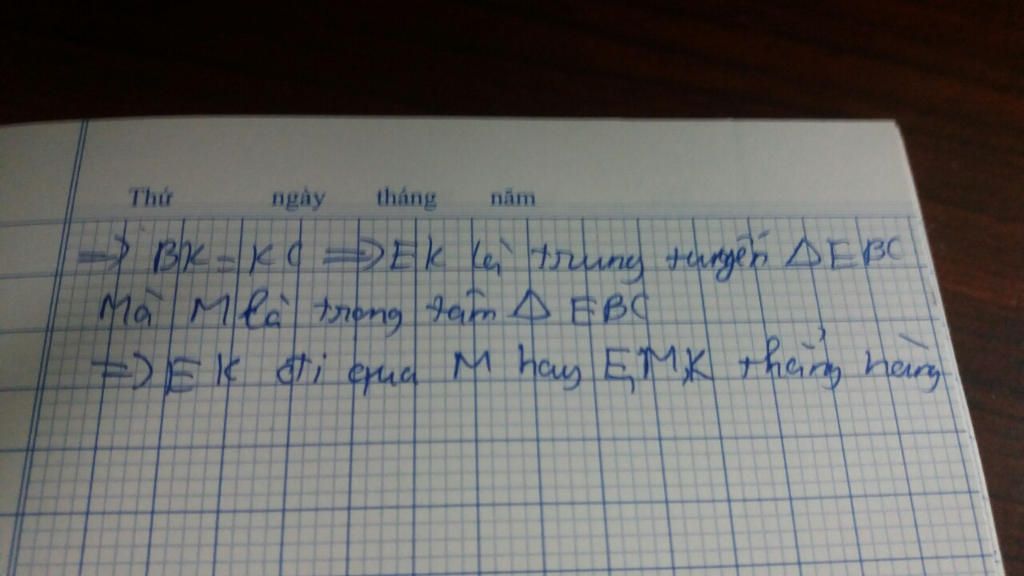 Thứ ngày tháng năm
=> BK = KC => EK là trung tuyến Δ EBC
Mà M là trọng tâm Δ EBC
=> EK đi qua M hay E,M,K thẳng hàng